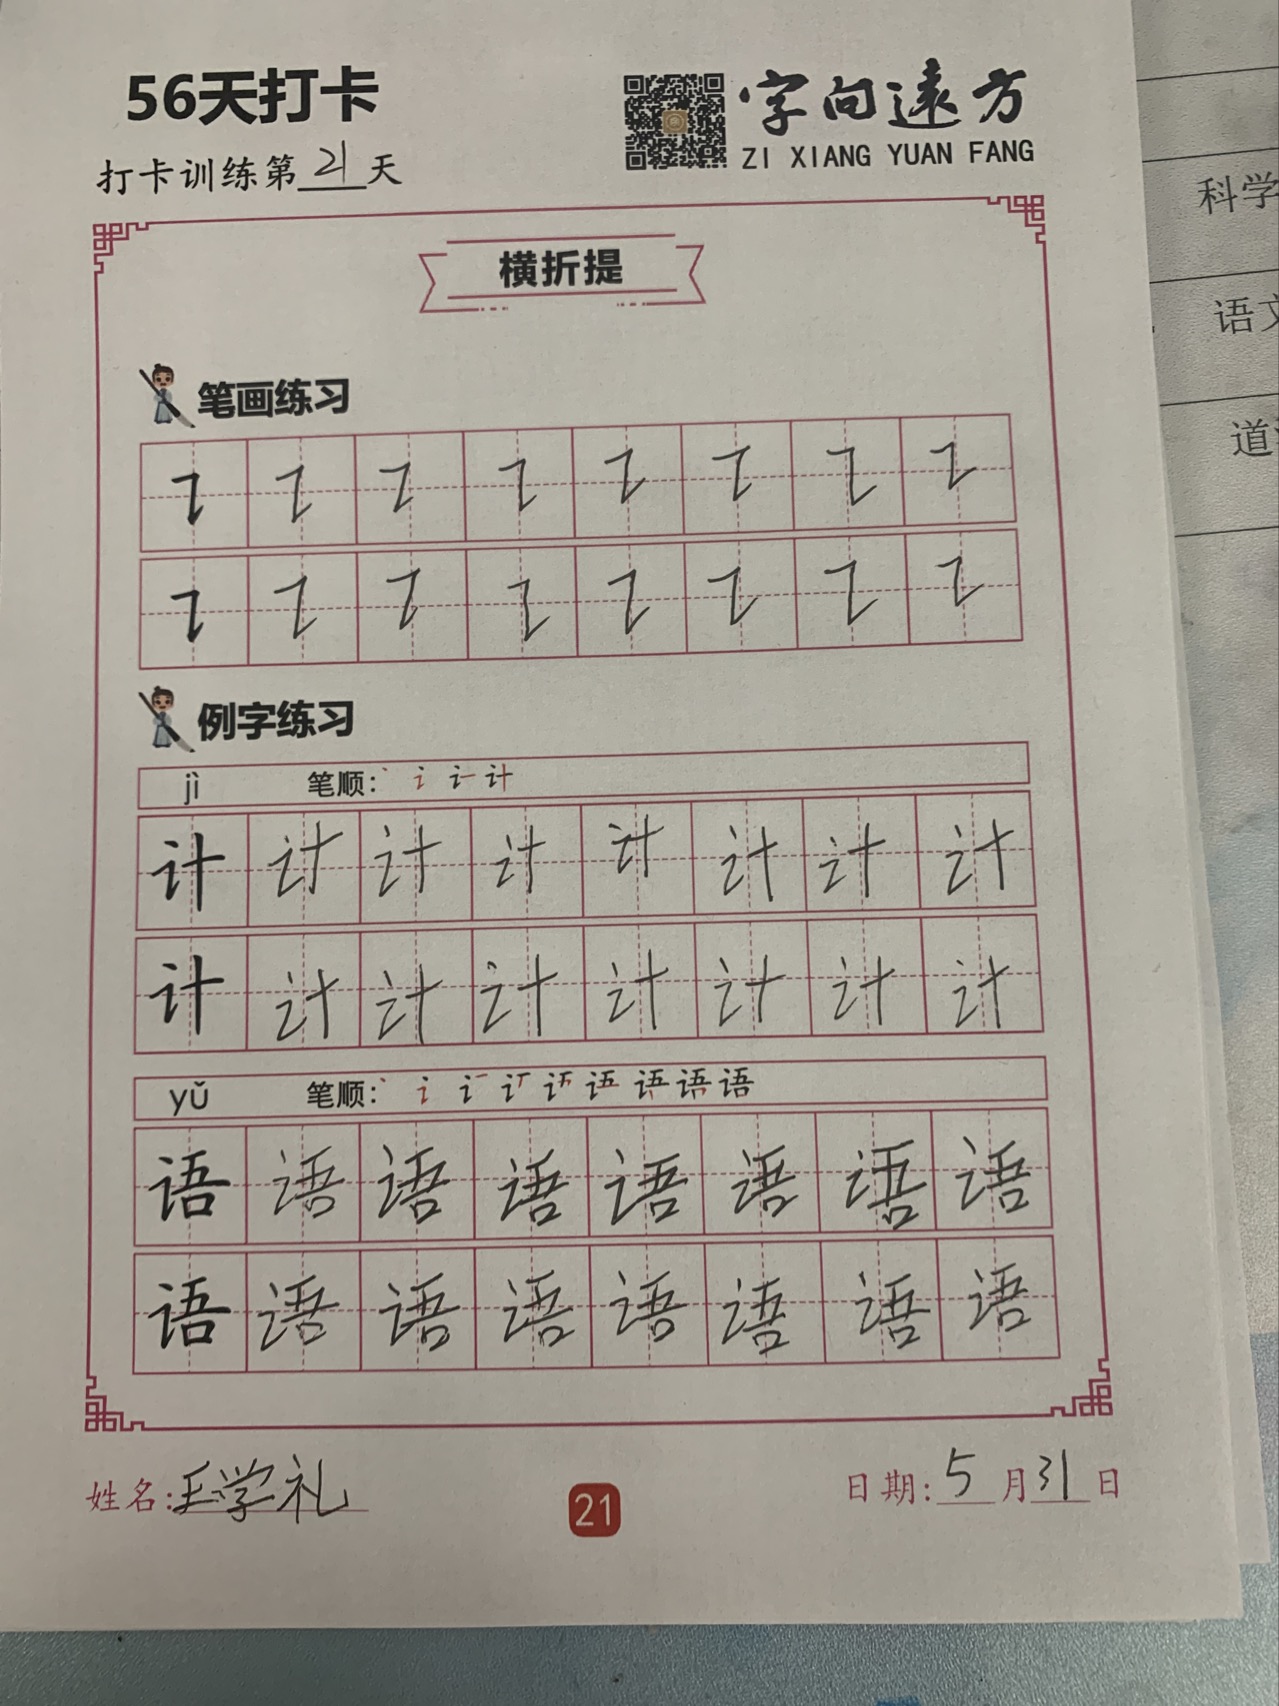 56天打卡
字向遠方
ZI XIANG YUAN FANG
打卡训练第21天
横折提
笔画练习
㇊ ㇊ ㇊ ㇊ ㇊ ㇊ ㇊ ㇊
㇊ ㇊ ㇊ ㇊ ㇊ ㇊ ㇊ ㇊
例字练习
jì 笔顺: 丶 讠 计
计 计 计 计 计 计 计 计
计 计 计 计 计 计 计 计
yǔ 笔顺: 丶 讠 语
语 语 语 语 语 语 语 语
语 语 语 语 语 语 语 语
姓名:王学礼
21
日期:5月31日
科学
语文
道